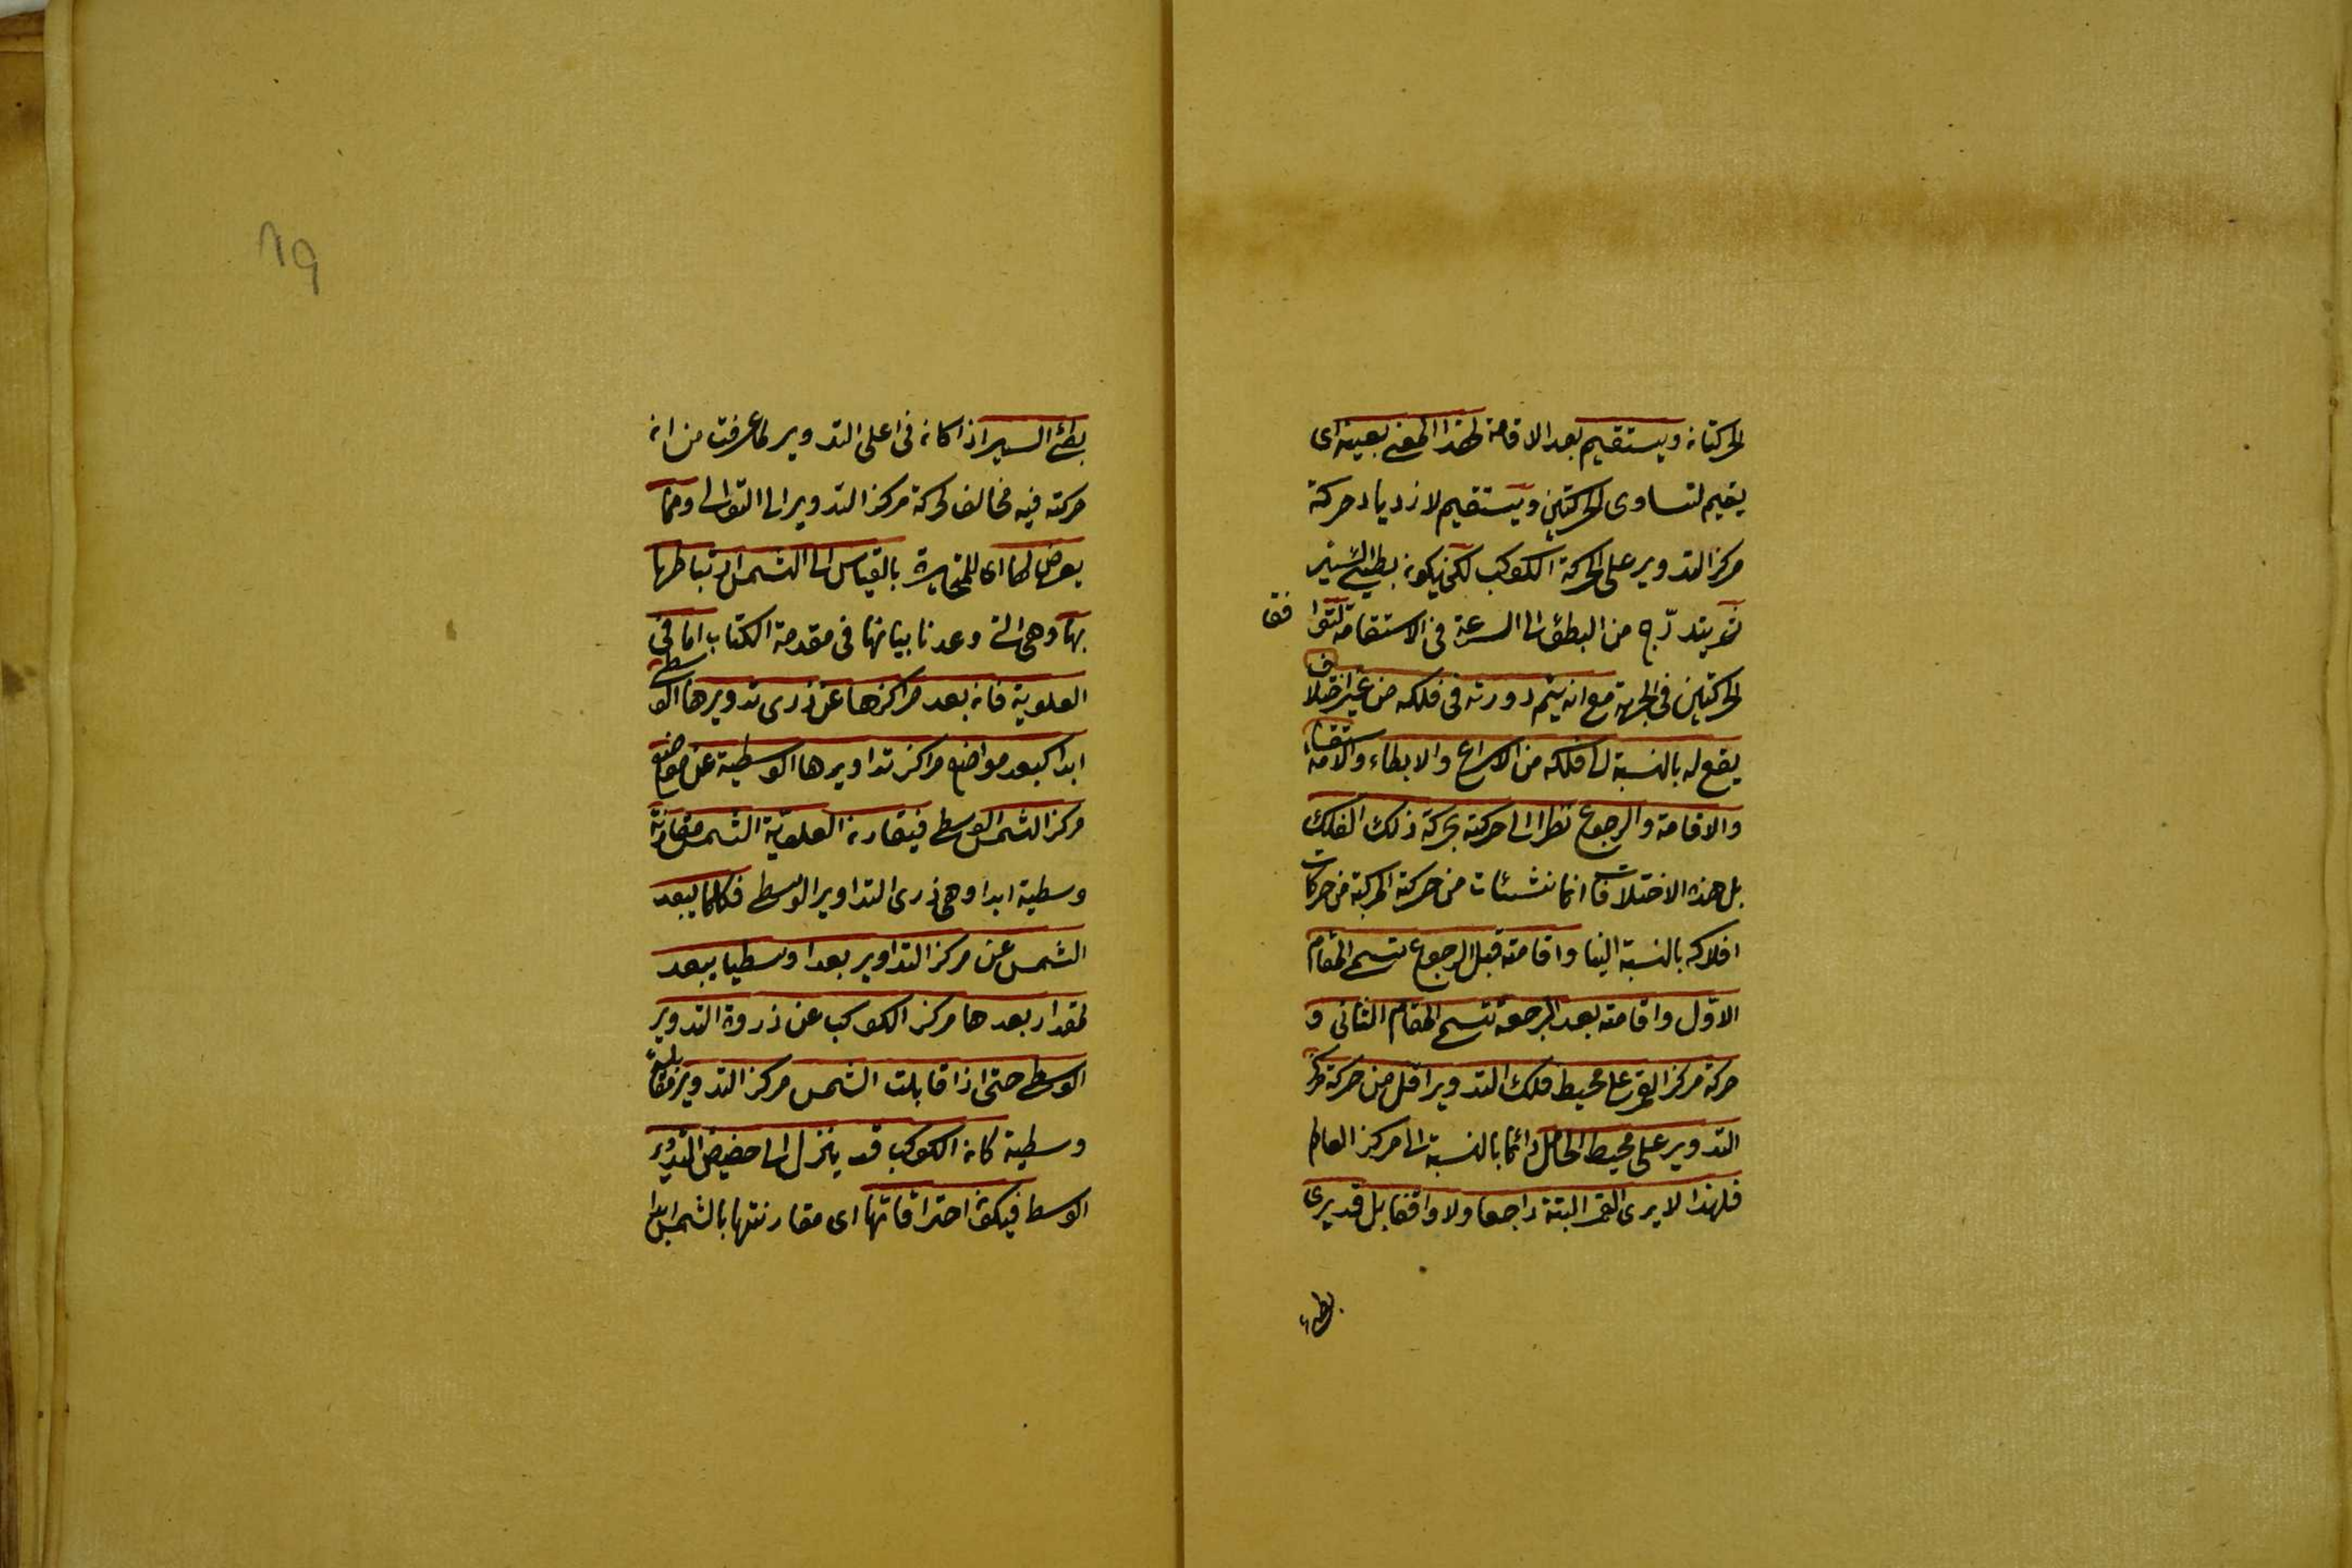 الحركتان ويستقيم بعد الاقامة لهذا المعنى بعينه اى
يقيم لتساوى الحركتين ويستقيم لازدياد حركة
مركز التدوير على الحركة الكوكب لكن يكون بطيئ السير
ثم يتدرّج من البطؤ الى السرعة فى الاستقامة لتوافق
الحركتين فى الجهة مع انه يتم دورته فى فلكه من غير اختلاف
يقع له بالنسبة الى فلكه من الاسراع والابطاء والاستقامة
والاقامة والرجوع نظرا الى حركته بحركة ذلك الفلك
بل هذه الاختلافات انما نشئات من حركته المركبة من حركات
افلاكه بالنسبة الينا واقامته قبل الرجوع تسمى المقام
الاوّل واقامته بعد الرجعة تسمى المقام الثانى و
حركة مركز القمر على محيط فلك التدوير اقل من حركة مركز
التدوير على محيط الحامل دائما بالنسبة الى مركز العالم
فلهذا لا يرى القمر البتة راجعا ولا واقفا بل قد يرى
بطيء
19
بطئ السير اذا كان فى اعلى التدوير لما عرفت من ان
حركته فيه مخالف لحركة مركز التدوير الى التوالى ومما
يعرض لها اى للمتحيرة بالقياس الى الشمس ارتباطها
بها وهى التى وعدنا بيانها فى مقدمة الكتاب اما فى
العلوية فان بعد مراكزها عن ذرى تدويرها الوسطى
ابدا كبعد مواضع مراكز تداويرها الوسطية عن موضع
مركز الشمس الوسطى فيقارن العلوية الشمس مقارنة
وسطية ابدا وهى ذرى التداوير الوسطى فكلما يبعد
الشمس عن مركز التداوير بعدا وسطيا يبعد
لمقدار بعدها مركز الكوكب عن ذروة التدوير
الوسطى حتى اذا قابلت الشمس مركز التدوير مقابلة
وسطية كان الكوكب قد ينزل الى حضيض التدوير
الوسط فيكون احتراقاتها اى مقارنتها بالشمس ابدا